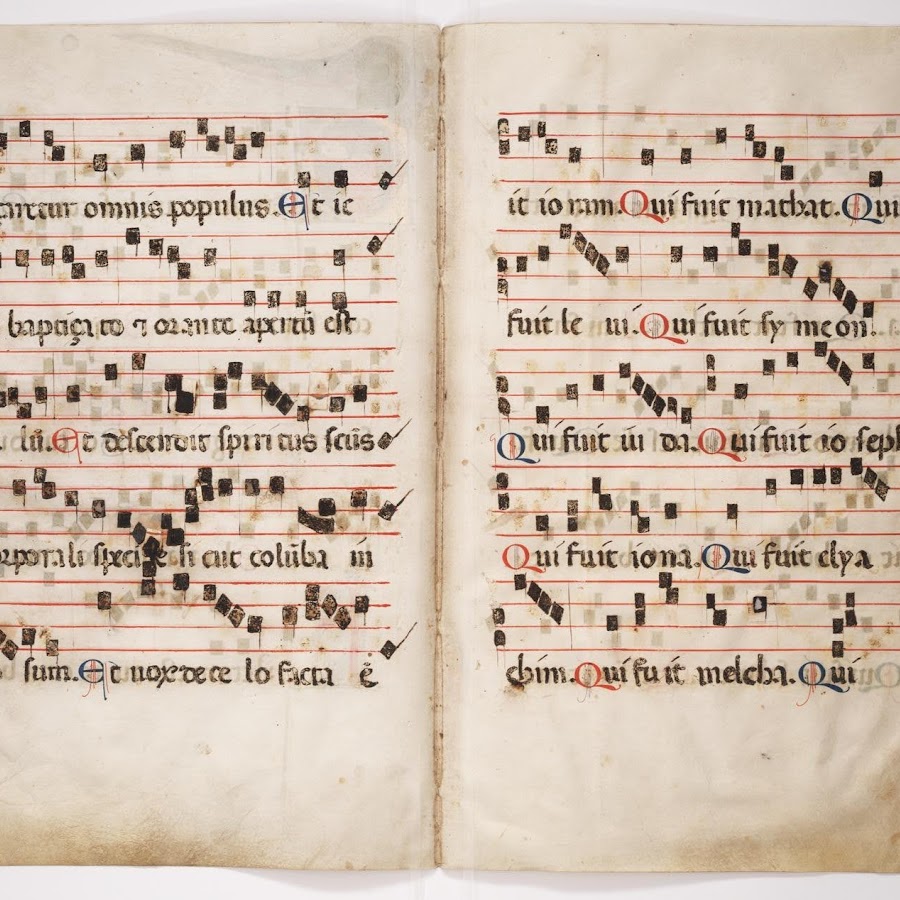 omnis populus. Et ie
baptiçato ⁊ orante apertū est
lū. Et descendit spiritus scūs
specie si cut colūba in
sum. Et uox de ce lo facta ē
it io ram. Qui fuit mathat. Qui
fuit le ui. Qui fuit sy me on.
Qui fuit iu da. Qui fuit io seph
Qui fuit iona. Qui fuit elya
chim. Qui fu it melcha. Qui